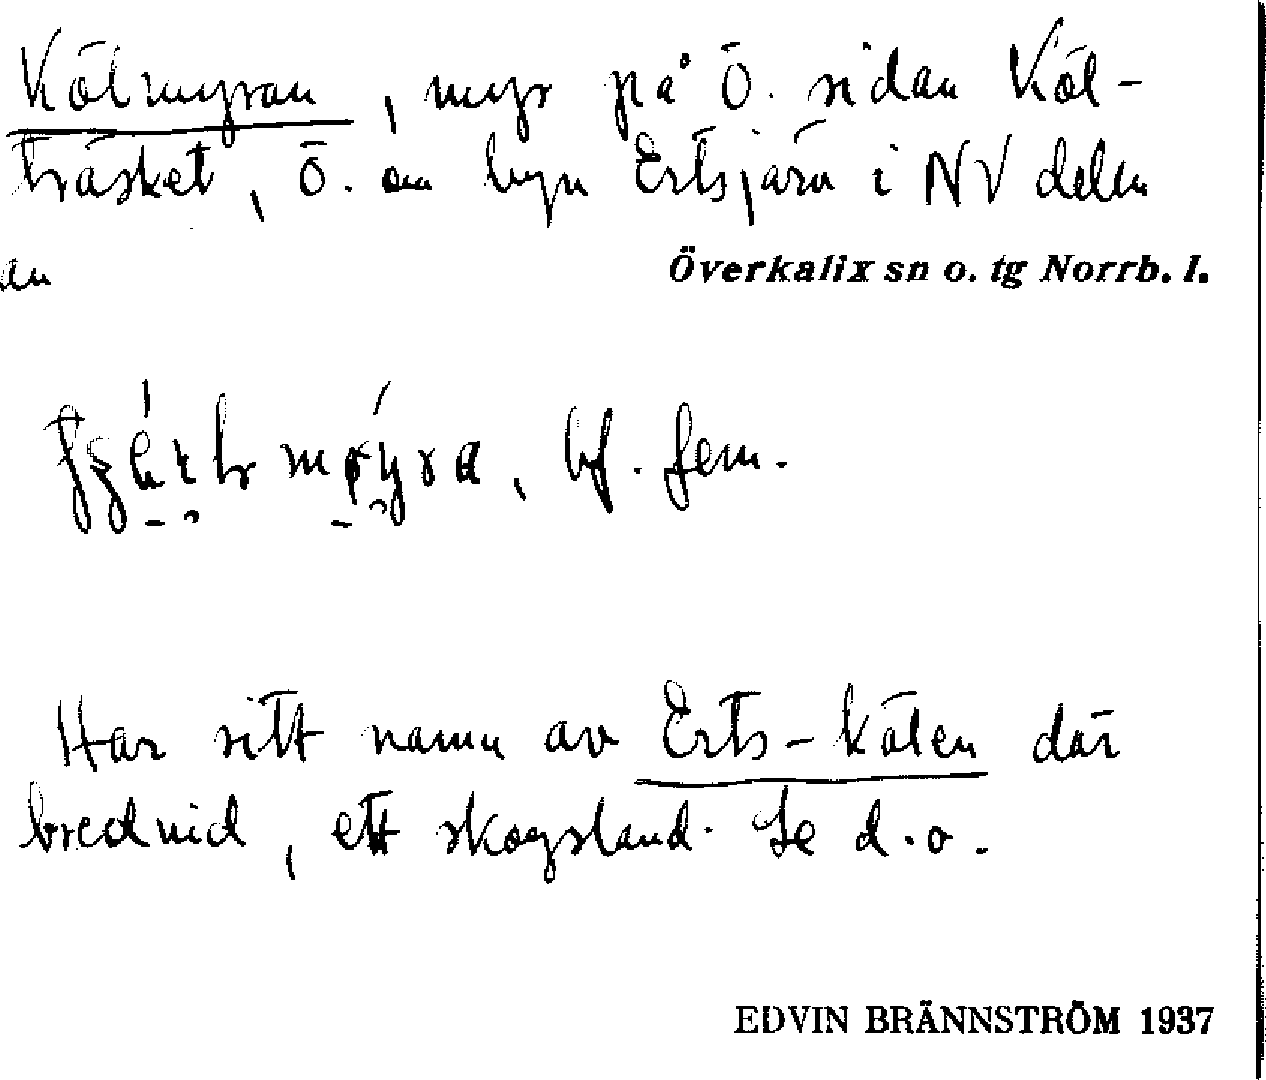 Kölmyran, myr på Ö. sidan Köl-
träsket, Ö. om byn Ertsjärv i NV delen
an
Överkalix sn o. tg Norrb. l.
bf. fem.
Har sitt namn av Erts-kölen där
bredvid, ett skogsland. Se d.o.
EDVIN BRÄNNSTRÖM 1937